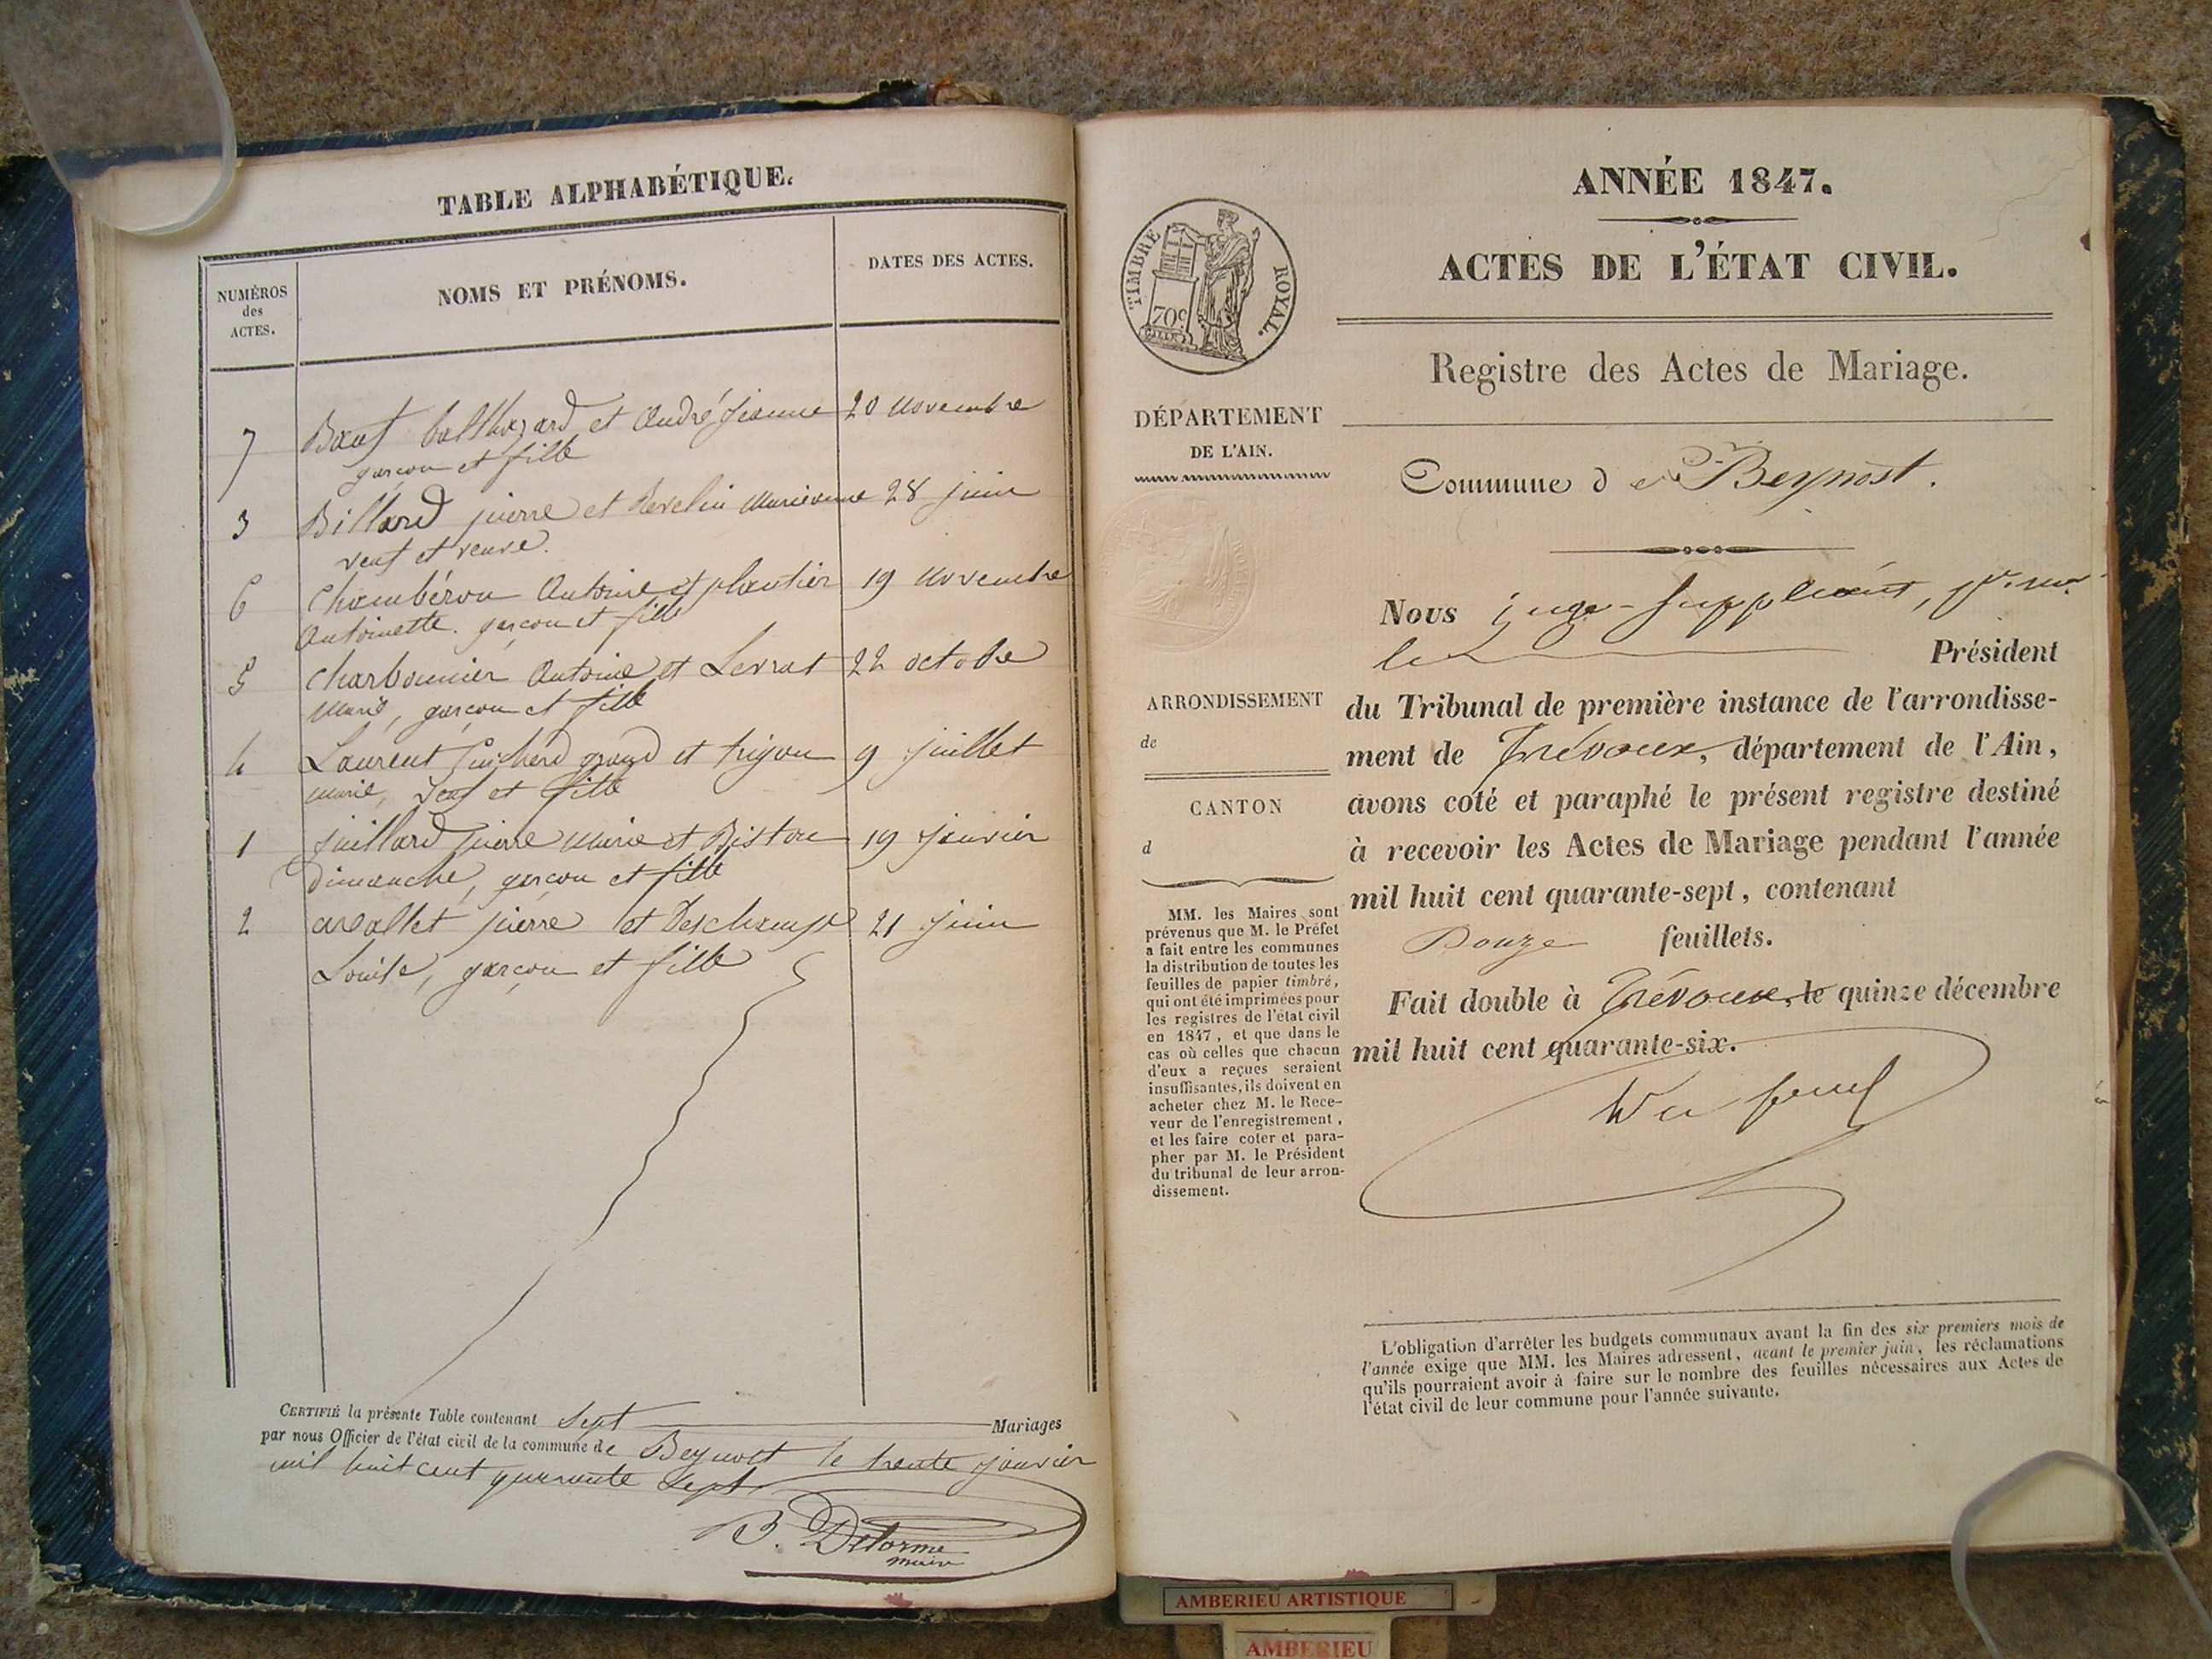 TABLE ALPHABÉTIQUE.
NUMÉROS
des
ACTES.
NOMS ET PRÉNOMS.
DATES DES ACTES.
7 Bœuf balthazard et André jeanne 20 novembre
garçon et fille
3 Billard pierre et Revelin Marianne 28 juin
veuf et veuve.
6 Chambéron Antoine et plantier 19 novembre
Antoinette. garçon et fille
5 Charbonnier Antoine et Levrat 22 octobre
Marie, garçon et fille
4 Laurent et 9 juillet
Marie, veuf et fille
1 juillard pierre Marie et Biston 19 janvier
Dimanche, garçon et fille
2 pierre et Deschamps 21 juin
Louise, garçon et fille
CERTIFIÉ la présente Table contenant Sept Mariages
par nous Officier de l'état civil de la commune de Beynost le trente janvier
mil huit cent quarante Sept
B. Delorme
maire
TIMBRE ROYAL.
70c
ANNÉE 1847.
ACTES DE L'ÉTAT CIVIL.
Registre des Actes de Mariage.
DÉPARTEMENT
DE L'AIN.
Commune de Beynost.
ARRONDISSEMENT
de
CANTON
d
MM. les Maires sont
prévenus que M. le Préfet
a fait entre les communes
la distribution de toutes les
feuilles de papier timbré,
qui ont été imprimées pour
les registres de l'état civil
en 1847, et que dans le
cas où celles que chacun
d'eux a reçues seraient
insuffisantes, ils doivent en
acheter chez M. le Rece-
veur de l'enregistrement,
et les faire coter et para-
pher par M. le Président
du tribunal de leur arron-
dissement.
Nous juge-Suppléant, pr. mr
le Président
du Tribunal de première instance de l'arrondisse-
ment de Trévoux, département de l'Ain,
avons coté et paraphé le présent registre destiné
à recevoir les Actes de Mariage pendant l'année
mil huit cent quarante-sept, contenant
Douze feuillets.
Fait double à Trévoux, le quinze décembre
mil huit cent quarante-six.
L'obligation d'arrêter les budgets communaux avant la fin des six premiers mois de
l'année exige que MM. les Maires adressent, avant le premier juin, les réclamations
qu'ils pourraient avoir à faire sur le nombre des feuilles nécessaires aux Actes de
l'état civil de leur commune pour l'année suivante.
AMBERIEU ARTISTIQUE
AMBERIEU